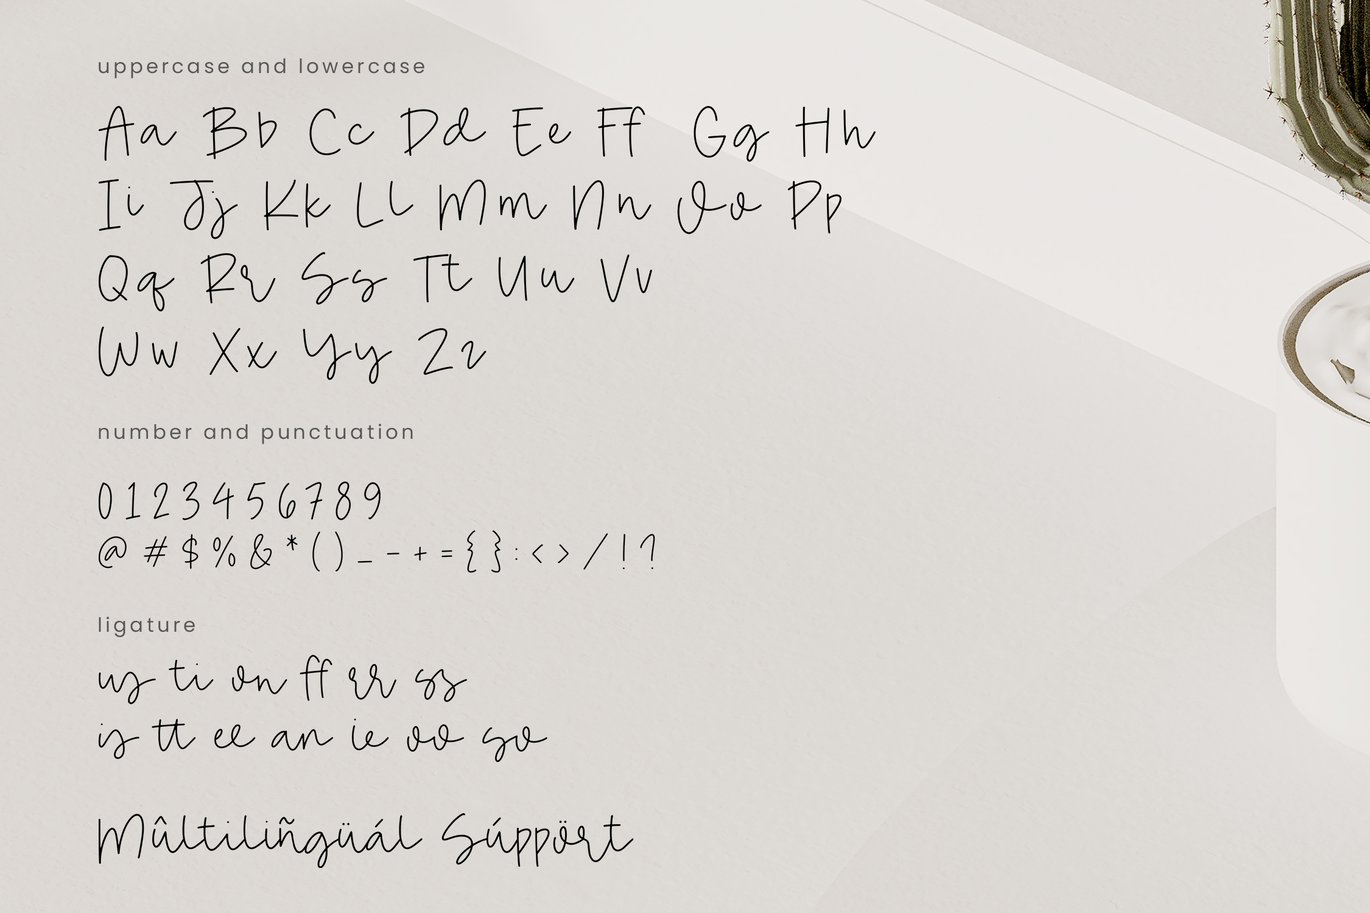 uppercase and lowercase
Aa Bb Cc Dd Ee Ff Gg Hh
Ii Jj Kk Ll Mm Nn Oo Pp
Qq Rr Ss Tt Uu Vv
Ww Xx Yy Zz
number and punctuation
0 1 2 3 4 5 6 7 8 9
@ # $ % & * ( ) _ - + = { } : < > / ! ?
ligature
us ti on ff rr ss
is tt ee an ie oo so
Mûltiliñgüál Súppört